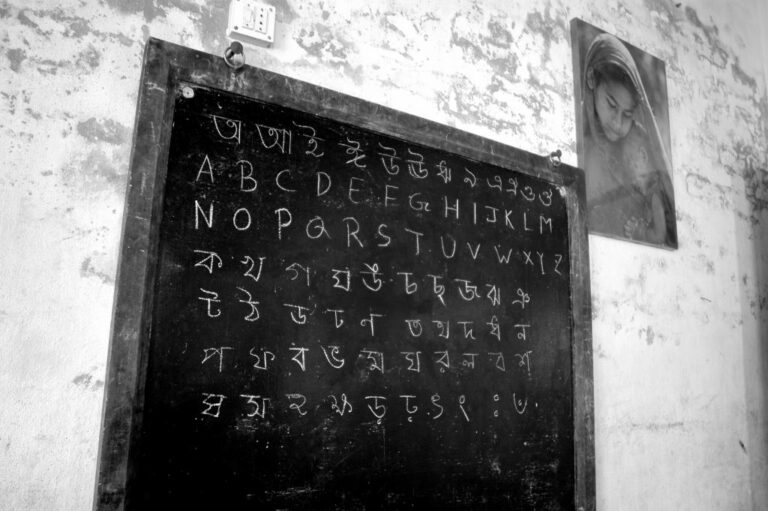 অ আ ই ঈ উ ঊ ঋ ৯ এ ঐ ও ঔ
A B C D E F G H I J K L M
N O P Q R S T U V W X Y Z
ক খ গ ঘ ঙ চ ছ জ ঝ ঞ
ট ঠ ড ঢ ণ ত থ দ ধ ন
প ফ ব ভ ম য র ল ব শ
ষ স হ ক্ষ ড় ঢ় ৎ ং ঃ ঁ